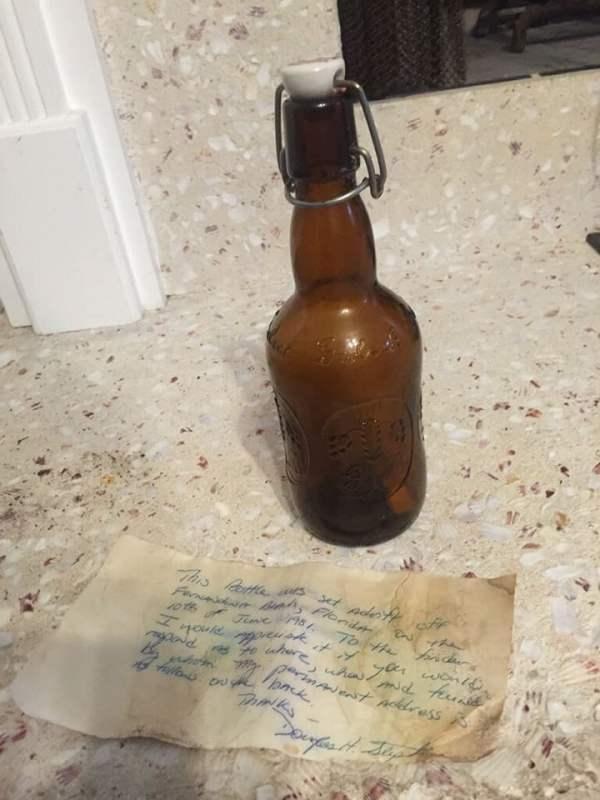 This Bottle was set adrift off
Fernandina Beach, Florida on the
10th of June 1981. To the finder,
I would it if you would
as to where, when and
by whom. My permanent address is
as follows on the back.
Thanks
Douglas H.